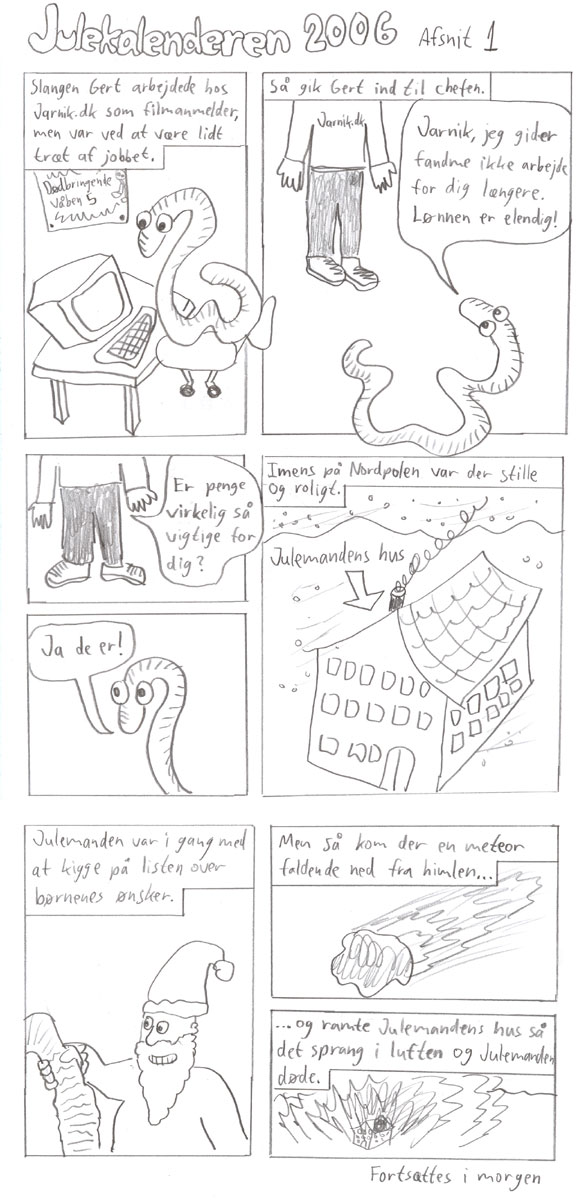 Julekalenderen 2006 Afsnit 1
Slangen Gert arbejdede hos
Jarnik.dk som filmanmelder,
men var ved at være lidt
træt af jobbet.
Dødbringende
våben 5
Så gik Gert ind til chefen.
Jarnik.dk
Jarnik, jeg gider
fandme ikke arbejde
for dig længere.
Lønnen er elendig!
Er penge
virkelig så
vigtige for
dig?
Ja de er!
Imens på Nordpolen var der stille
og roligt.
Julemandens hus
Julemanden var i gang med
at kigge på listen over
børnenes ønsker.
Men så kom der en meteor
faldende ned fra himlen...
...og ramte Julemandens hus så
det sprang i luften og Julemanden
døde.
Fortsættes i morgen